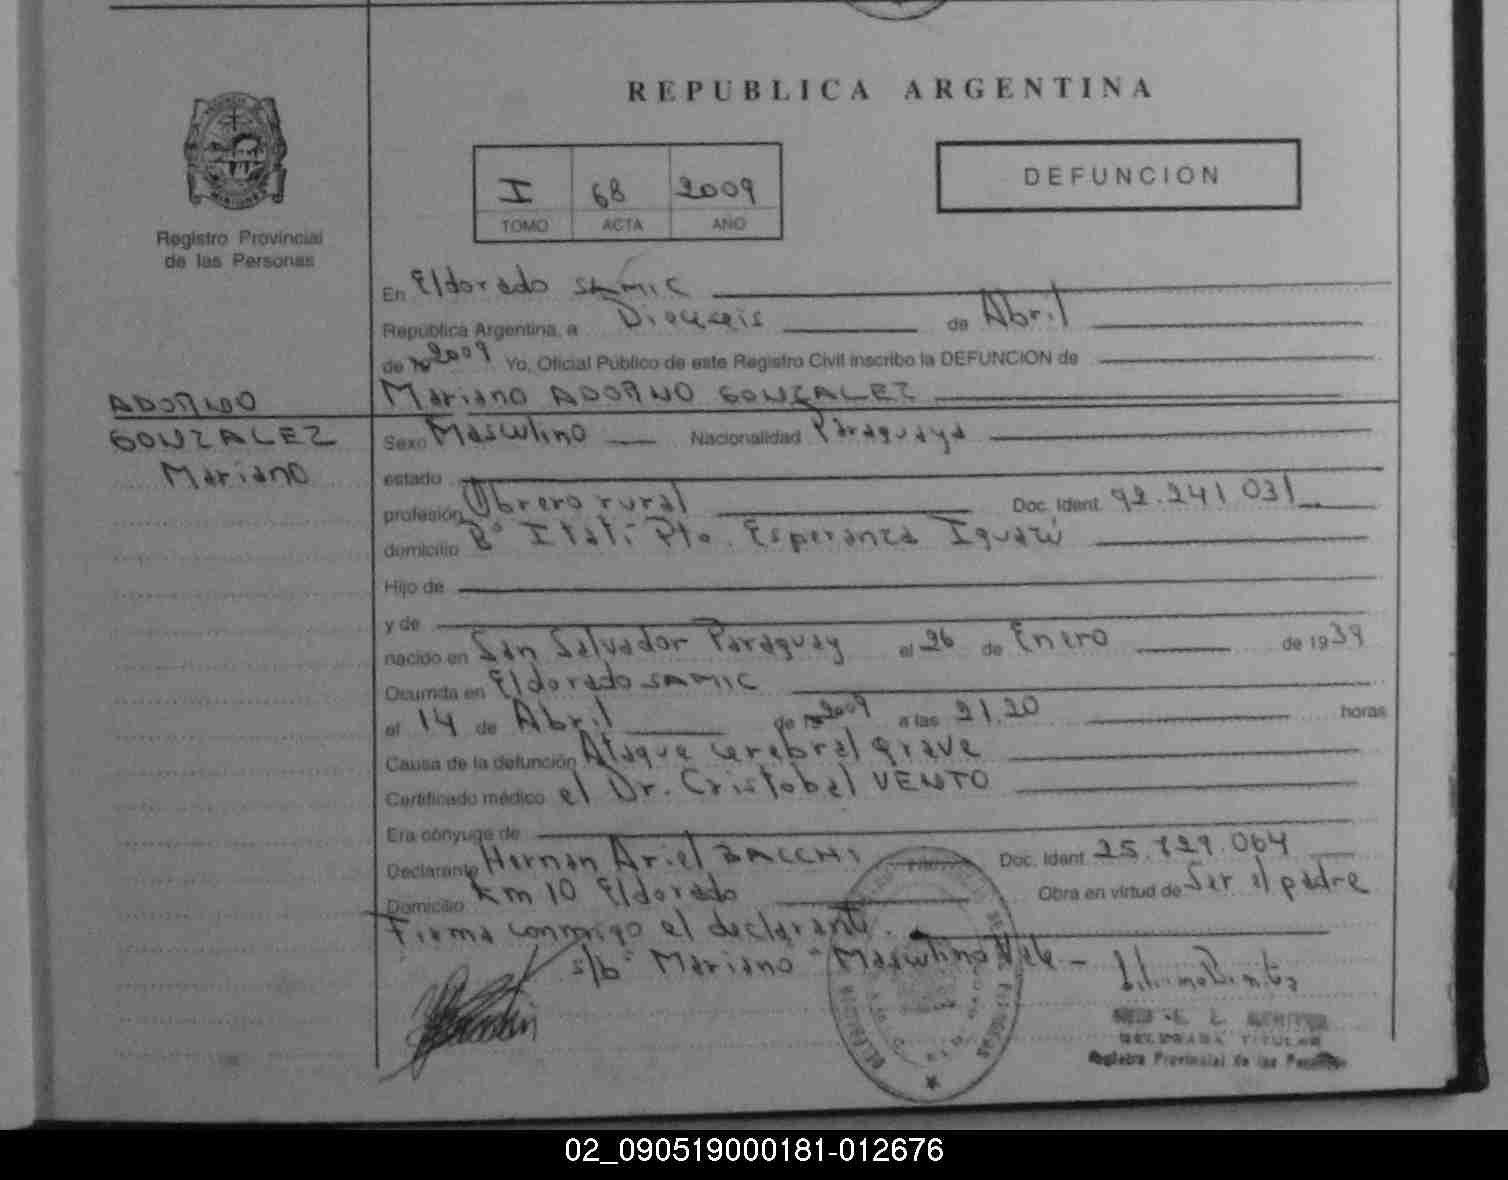 REPUBLICA ARGENTINA
I 68 2009
TOMO ACTA AÑO
DEFUNCION
Registro Provincial
de las Personas
En Eldorado SAMIC
República Argentina, a Dieciseis de Abril
de 2009 Yo, Oficial Público de este Registro Civil inscribo la DEFUNCION de
Mariano ADORNO GONZALEZ
ADORNO
GONZALEZ
Mariano
Sexo Masculino Nacionalidad Paraguaya
estado
profesión Obrero rural Doc. Ident. 92.241.031
domicilio B° Itatí Pto. Esperanza Iguazú
Hijo de
y de
nacido en San Salvador Paraguay el 26 de Enero de 1939
Ocurrida en Eldorado SAMIC
el 14 de Abril de 2009 a las 21.20 horas
Causa de la defunción Ataque cerebral grave
Certificado médico el Dr. Cristobal VENTO
Era cónyuge de
Declarante Hernan Ariel BACCHI Doc. Ident. 25.729.064
Domicilio Km 10 Eldorado Obra en virtud de Ser el padre
Firma conmigo el declarante.
s/b "Mariano - Masculino Vale -
TITULAR
Registro Provincial de las Personas
02_090519000181-012676